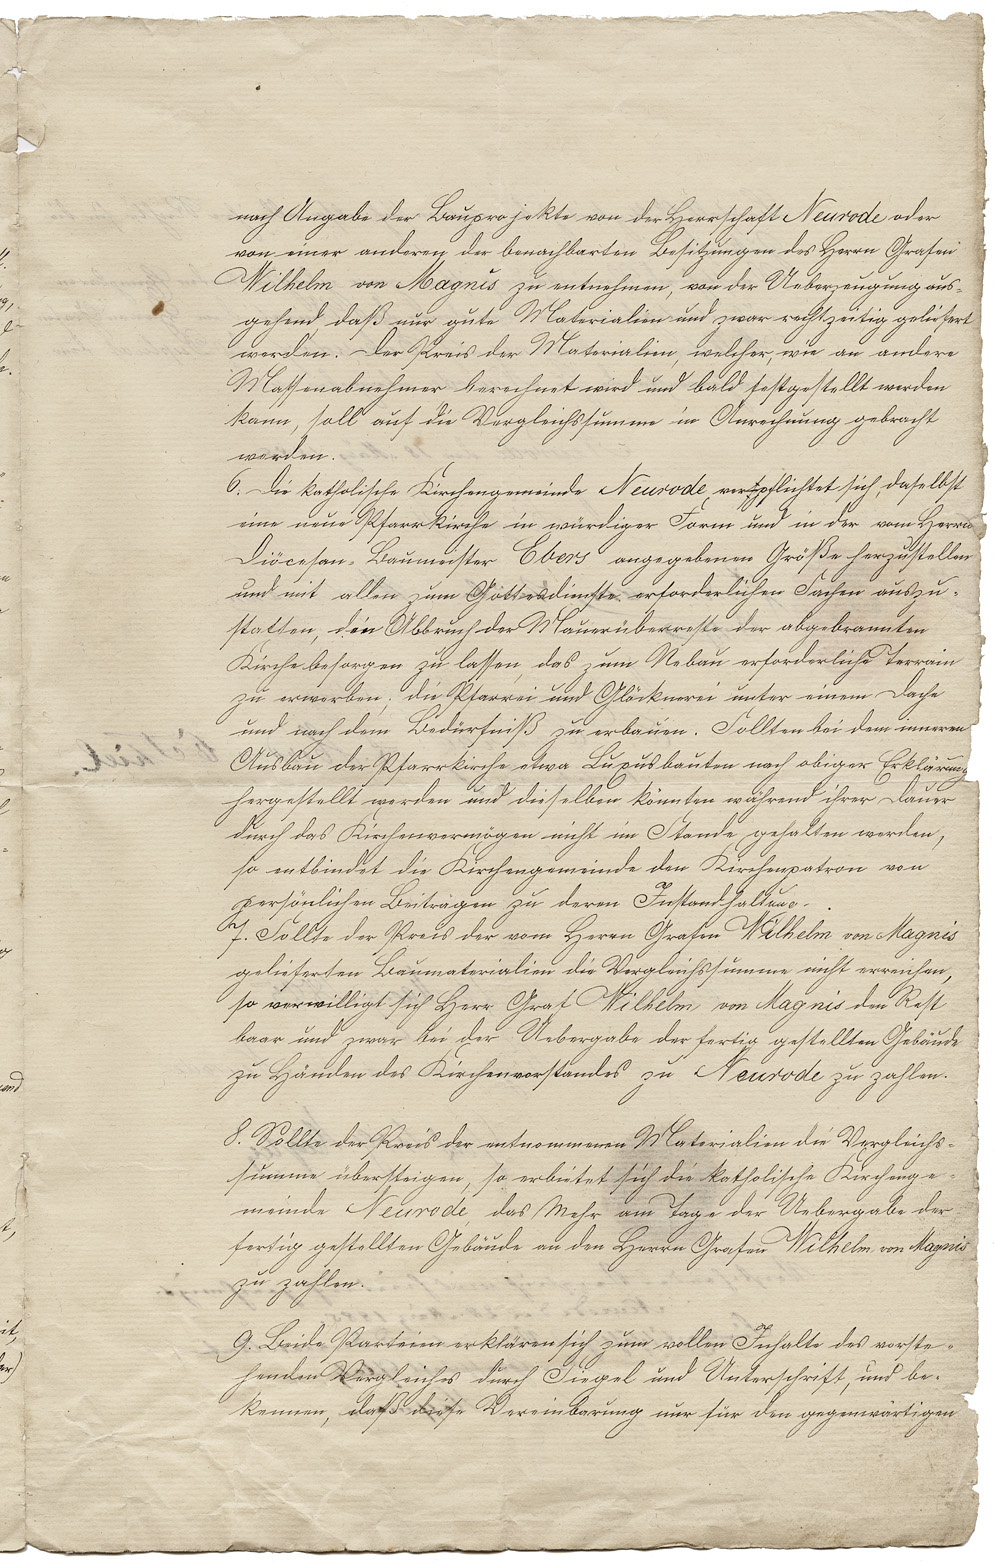 nach Angabe der Bauprojekte von der Herrschaft Neurode oder
von einer anderen der benachbarten Besitzungen des Herrn Grafen
Wilhelm von Magnis zu entnehmen, von der Ueberzeugung aus-
gehend daß nur gute Materialien und zwar rechtzeitig geliefert
werden. Der Preis der Materialien, welcher, wie an andere
Massenabnehmer berechnet wird und bald festgestellt werden
kann, soll auf die Vergleichssumme in Anrechnung gebracht
werden.
6. Die katholische Kirchengemeinde Neurode verpflichtet sich, daselbst
eine neue Pfarrkirche in würdiger Form und in der vom Herrn
Diöcesan-Baumeister Ebers angegebenen Größe herzustellen
und mit allen zum Gottesdienste erforderlichen Sachen auszu-
statten, den Abbruch der Mauerüberreste der abgebrannten
Kirche besorgen zu lassen, das zum Nebau erforderliche Terrain
zu erwerben; die Pfarrei und Glöcknerei unter einem Dache
und nach dem Bedürfniß zu erbauen. Sollten bei dem inneren
Ausbau der Pfarrkirche etwa Luxusbauten nach obiger Erklärung
hergestellt werden und dieselben könnten während ihrer Dauer
durch das Kirchenvermögen nicht im Stande gehalten werden,
so entbindet die Kirchengemeinde den Kirchenpatron von
persönlichen Beiträgen zu deren Instandhaltung.
7. Sollte der Preis der vom Herrn Grafen Wilhelm von Magnis
gelieferten Baumaterialien die Vergleichssumme nicht erreichen,
so verwilligt sich Herr Graf Wilhelm von Magnis den Rest
baar und zwar bei der Uebergabe der fertig gestellten Gebäude
zu Händen des Kirchenvorstandes zu Neurode zu zahlen.
8. Sollte der Preis der entnommenen Materialien die Vergleichs-
summe übersteigen, so erbietet sich die katholische Kirchenge-
meinde Neurode, das Mehr am Tage der Uebergabe der
fertig gestellten Gebäude an den Herrn Grafen Wilhelm von Magnis
zu zahlen.
9. Beide Parteien erklären sich zum vollen Inhalte des vorste-
henden Vergleiches durch Siegel und Unterschrift, und be-
kennen, daß diese Vereinbarung nur für den gegenwärtigen